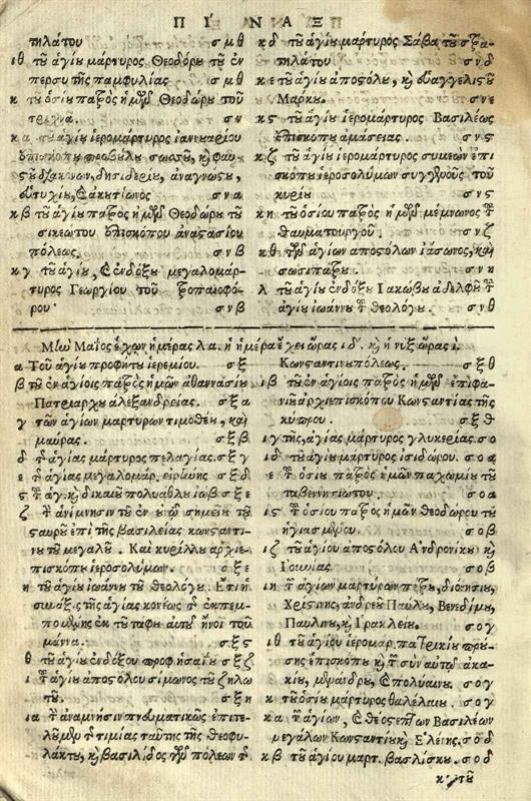 ΠΙΝΑΞ
τηλάτου σμθ
ιθ τοῦ ἁγίου μάρτυρος Θεοδώρου τοῦ ἐν
περσυ τῆς παμφυλίας σμθ
κ τοῦ ὁσίου πατρὸς ἡμῶν Θεοδώρου τοῦ
τριχνᾶ. σν
κα τοῦ ἁγίου ἱερομάρτυρος ἰανουαρίου
δησιδερίου, ἀναγνώστου,
εὐτυχίου, καὶ ἀκυτίωνος σνα
κβ τοῦ ἁγίου πατρὸς ἡμῶν Θεοδώρου τοῦ
σικεώτου ἐπισκόπου ἀναστασίου
πόλεως. σνβ
κγ τοῦ ἁγίου, καὶ ἐνδόξου μεγαλομάρ-
τυρος Γεωργίου τοῦ τροπαιοφό-
ρου· σνβ
κδ τοῦ ἁγίου μάρτυρος Σάβα τοῦ στρα-
τηλάτου σνδ
κε τοῦ ἁγίου ἀποστόλου, καὶ εὐαγγελιστοῦ
Μάρκου. σνε
κς τοῦ ἁγίου ἱερομάρτυρος Βασιλέως
ἐπισκόπου ἀμασείας. σνς
κζ τοῦ ἁγίου ἱερομάρτυρος συμεὼν ἐπι
σκόπου ἱεροσολύμων συγγενοῦς τοῦ
κυρίου σνς
κη τοῦ ὁσίου πατρὸς ἡμῶν μέμνωνος τοῦ
θαυματουργοῦ. σνζ
κθ τῶν ἁγίων ἀποστόλων ἰάσωνος, καὶ
σωσιπάτρου. σνκ
λ τοῦ ἁγίου ἐνδόξου Ιακώβου ἀδελφοῦ τοῦ
ἁγίου ἰωάννου τοῦ θεολόγου. σνθ
Μὴν Μαΐος ἔχων ἡμέρας λα. ἡ ἡμέρα ἔχει ὥρας ιδ. καὶ ἡ νὺξ ὥρας ι.
α Τοῦ ἁγίου προφήτου ἱερεμίου. σξ
β τοῦ ἐν ἁγίοις πατρὸς ἡμῶν ἀθανασίου
Πατριάρχου ἀλεξανδρείας. σξα
γ τῶν ἁγίων μαρτύρων τιμοθέου, καὶ
μαύρας. σξβ
δ τῆς ἁγίας μάρτυρος πελαγίας. σξγ
ε τῆς ἁγίας μεγαλομάρ. εἰρήνης σξδ
ς τοῦ ἁγ. καὶ δικαίου πολυάθλου ἰώβ σξε
ζ τὴν ἀνάμνησιν τοῦ ἐν οὐρανῷ σημείου τοῦ
σταυροῦ ἐπὶ τῆς βασιλείας κωνσταντί-
νου τοῦ μεγάλου. Καὶ κυρίλλου ἀρχιε-
πισκόπου ἱεροσολύμων. σξε
η τοῦ ἁγίου ἰωάννου τοῦ θεολόγου. Ἔτι ἡ
σύναξις τῆς ἁγίας κόνεως τῆς ἐκπεμ-
πομένης ἐκ τοῦ τάφου αὐτοῦ ἤγουν τοῦ
μάννα. σξς
θ τοῦ ἁγίου ἐνδόξου προφ. ἡσαΐου σξζ
ι τοῦ ἁγίου ἀποστόλου σίμωνος τοῦ ζηλω
τοῦ. σξη
ια τὴν ἀνάμνησιν πνευματικῶς ἐπιτε-
λοῦμεν τῆς τιμίας ταύτης τῆς θεοφυ-
λάκτου, καὶ βασιλίδος τῶν πόλεων τῆς
Κωνσταντινουπόλεως. σξθ
ιβ τοῦ ἐν ἁγίοις πατρὸς ἡμῶν ἐπιφα-
νίου ἀρχιεπισκόπου Κωνσταντίας τῆς
κύπρου. σξθ
ιγ τῆς ἁγίας μάρτυρος γλυκερίας. σο
ιδ τοῦ ἁγίου μάρτυρος ἰσιδώρου. σοα
ιε τοῦ ὁσίου πατρὸς ἡμῶν παχωμίου τοῦ
ταβεννησιώτου. σοα
ις τοῦ ὁσίου πατρὸς ἡμῶν Θεοδώρου τοῦ
ἡγιασμένου. σοβ
ιζ τοῦ ἁγίου ἀποστόλου Ανδρονίκου καὶ
Ιουνίας. σοβ
ιη τῶν ἁγίων μαρτύρων πέτρου, διονυσίου,
Χριστίνης, ἀνδρέου Παύλου, Βενεδίμου,
Παυλίνου, καὶ Ηρακλείου. σογ
ιθ τοῦ ἁγίου ἱερομάρ. πατρικίου πρού-
σης ἐπισκόπου καὶ τῶν σὺν αὐτῷ ἀκα-
κίου, μενάνδρου, καὶ πολυαίνου. σογ
κ τοῦ ὁσίου μάρτυρος θαλελαίου. σογ
κα τῶν ἁγίων, καὶ θεοστέπτων Βασιλέων
μεγάλων Κωνσταντίνου καὶ Ἑλένης. σοδ
κβ τοῦ ἁγίου μάρτ. βασιλίσκου. σοδ
κγ τοῦ